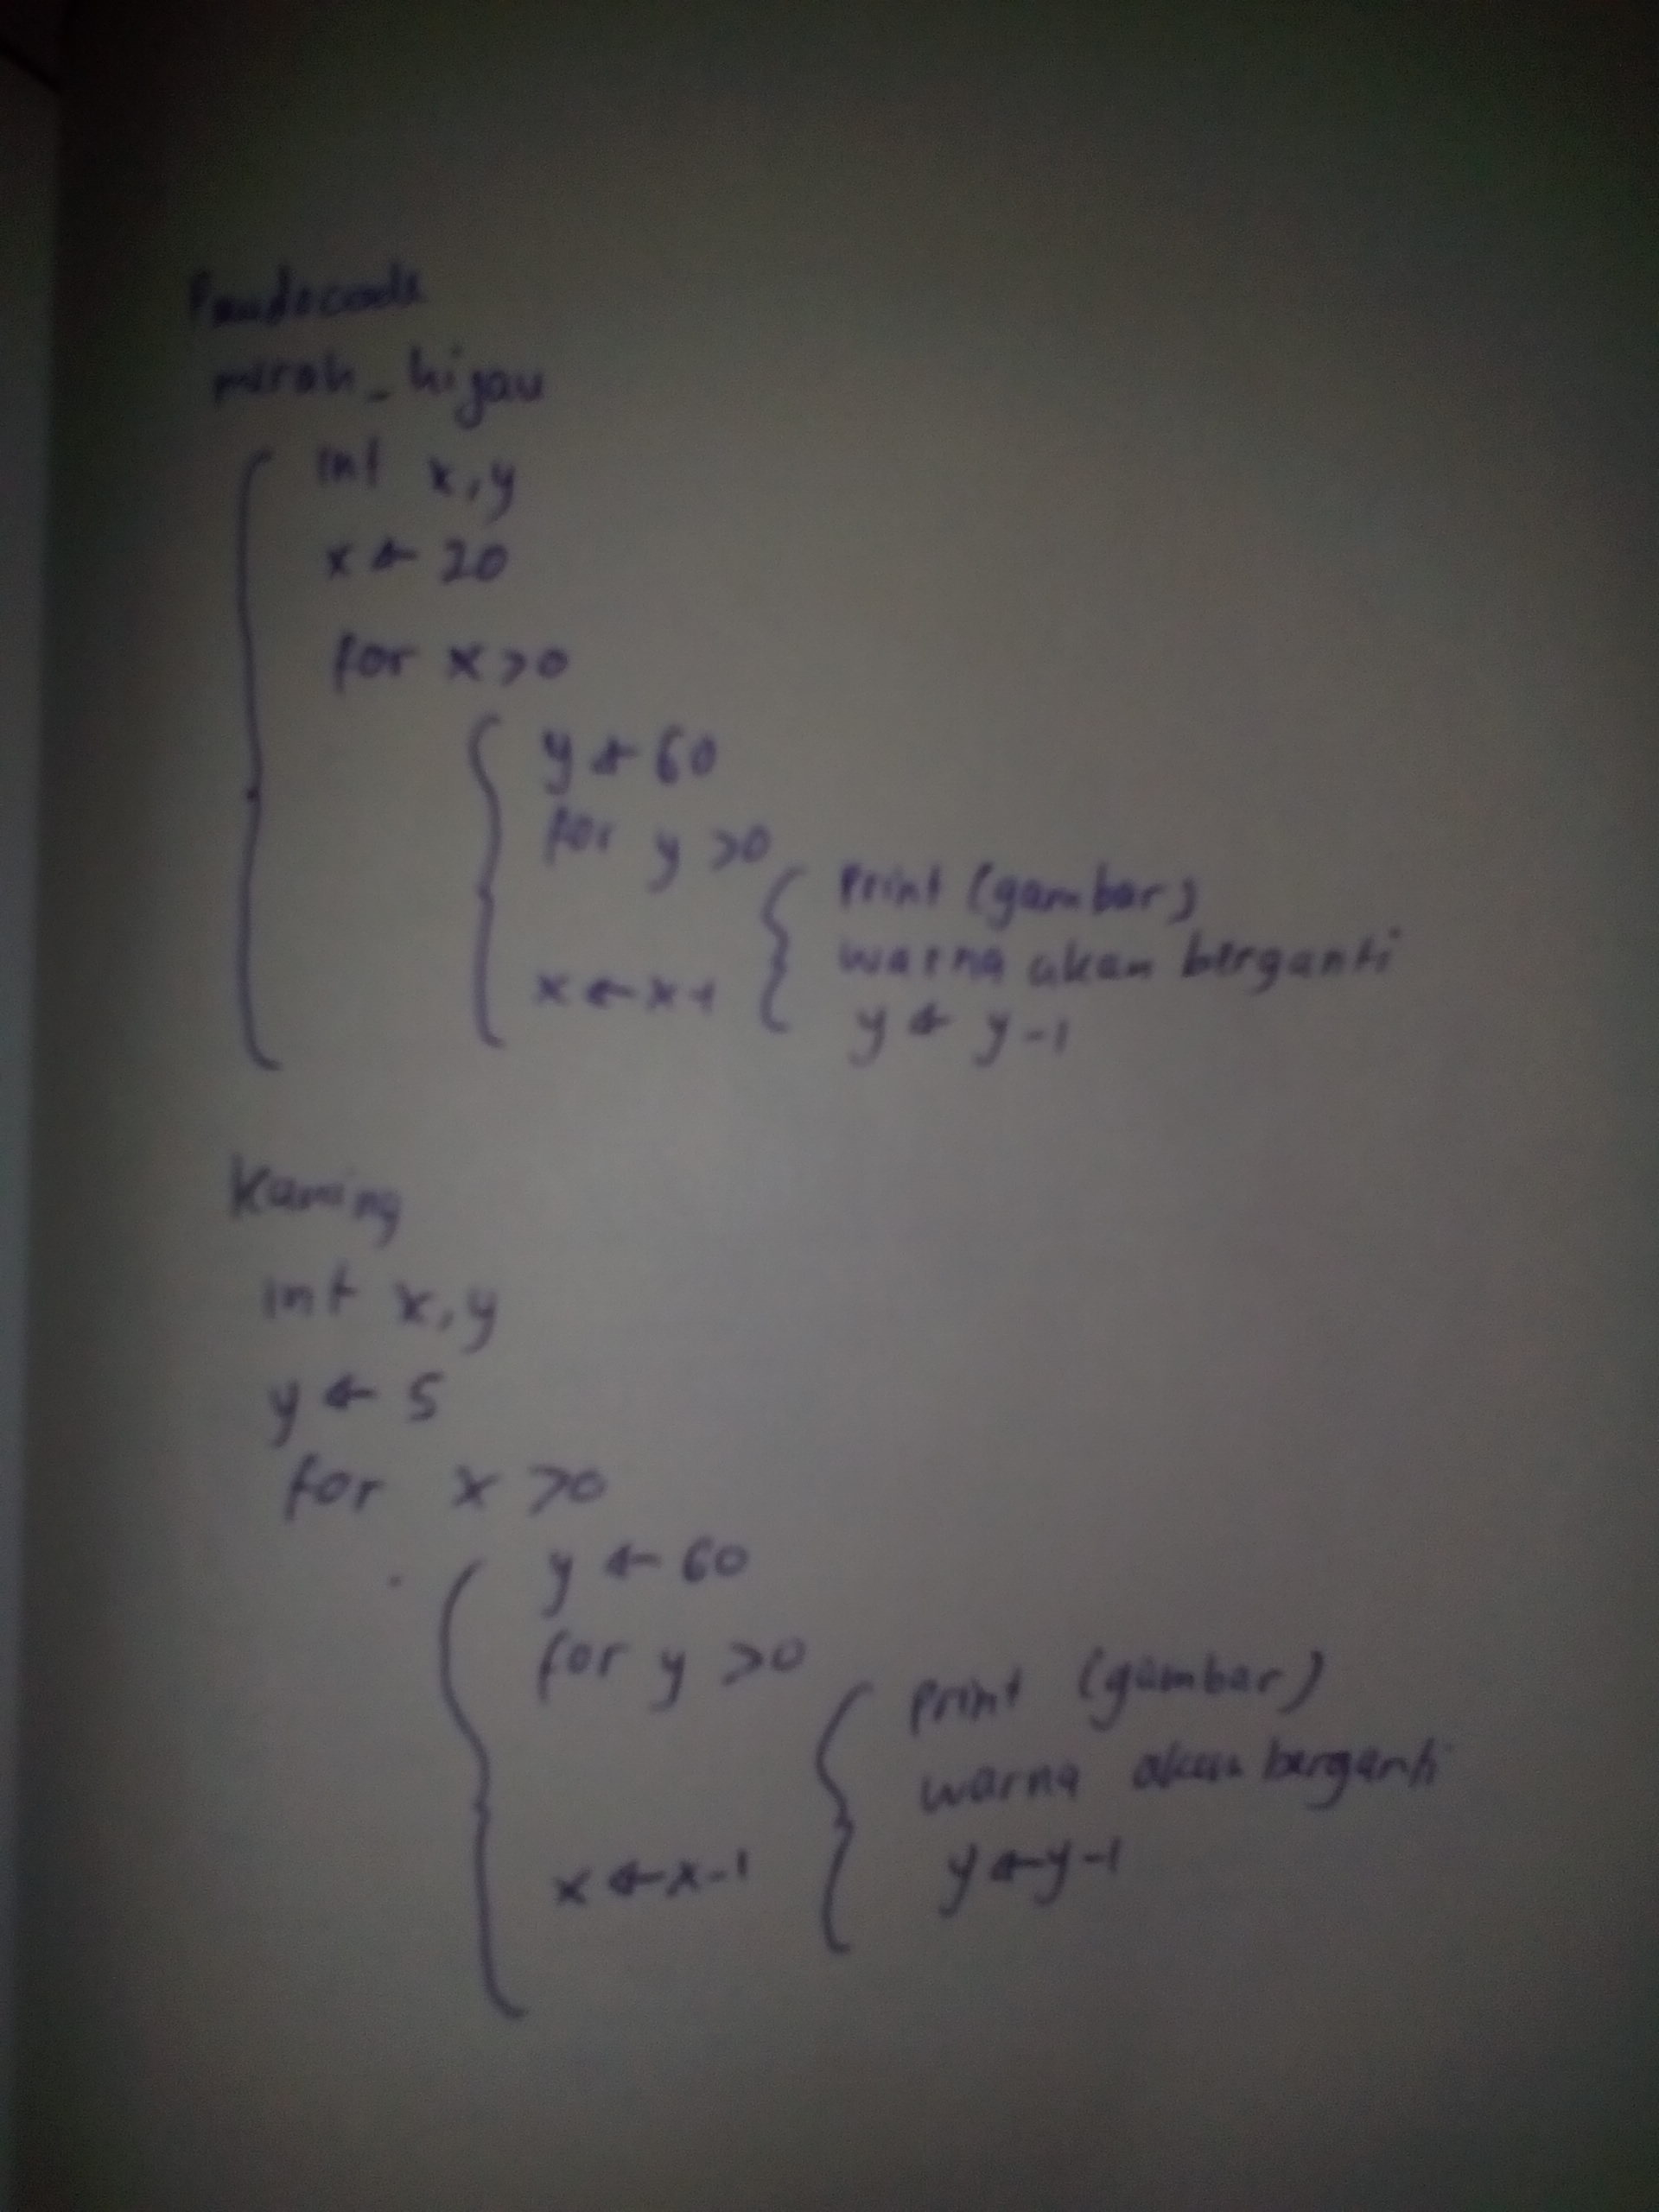 Pseudocode
merah_hijau
int x,y
x ← 20
for x>0
y ← 60
for y >0
print (gambar)
warna akan berganti
x ← x-1
y ← y-1
Kuning
int x,y
y ← 5
for x >0
y ← 60
for y >0
print (gambar)
warna akan berganti
x ← x-1
y ← y-1